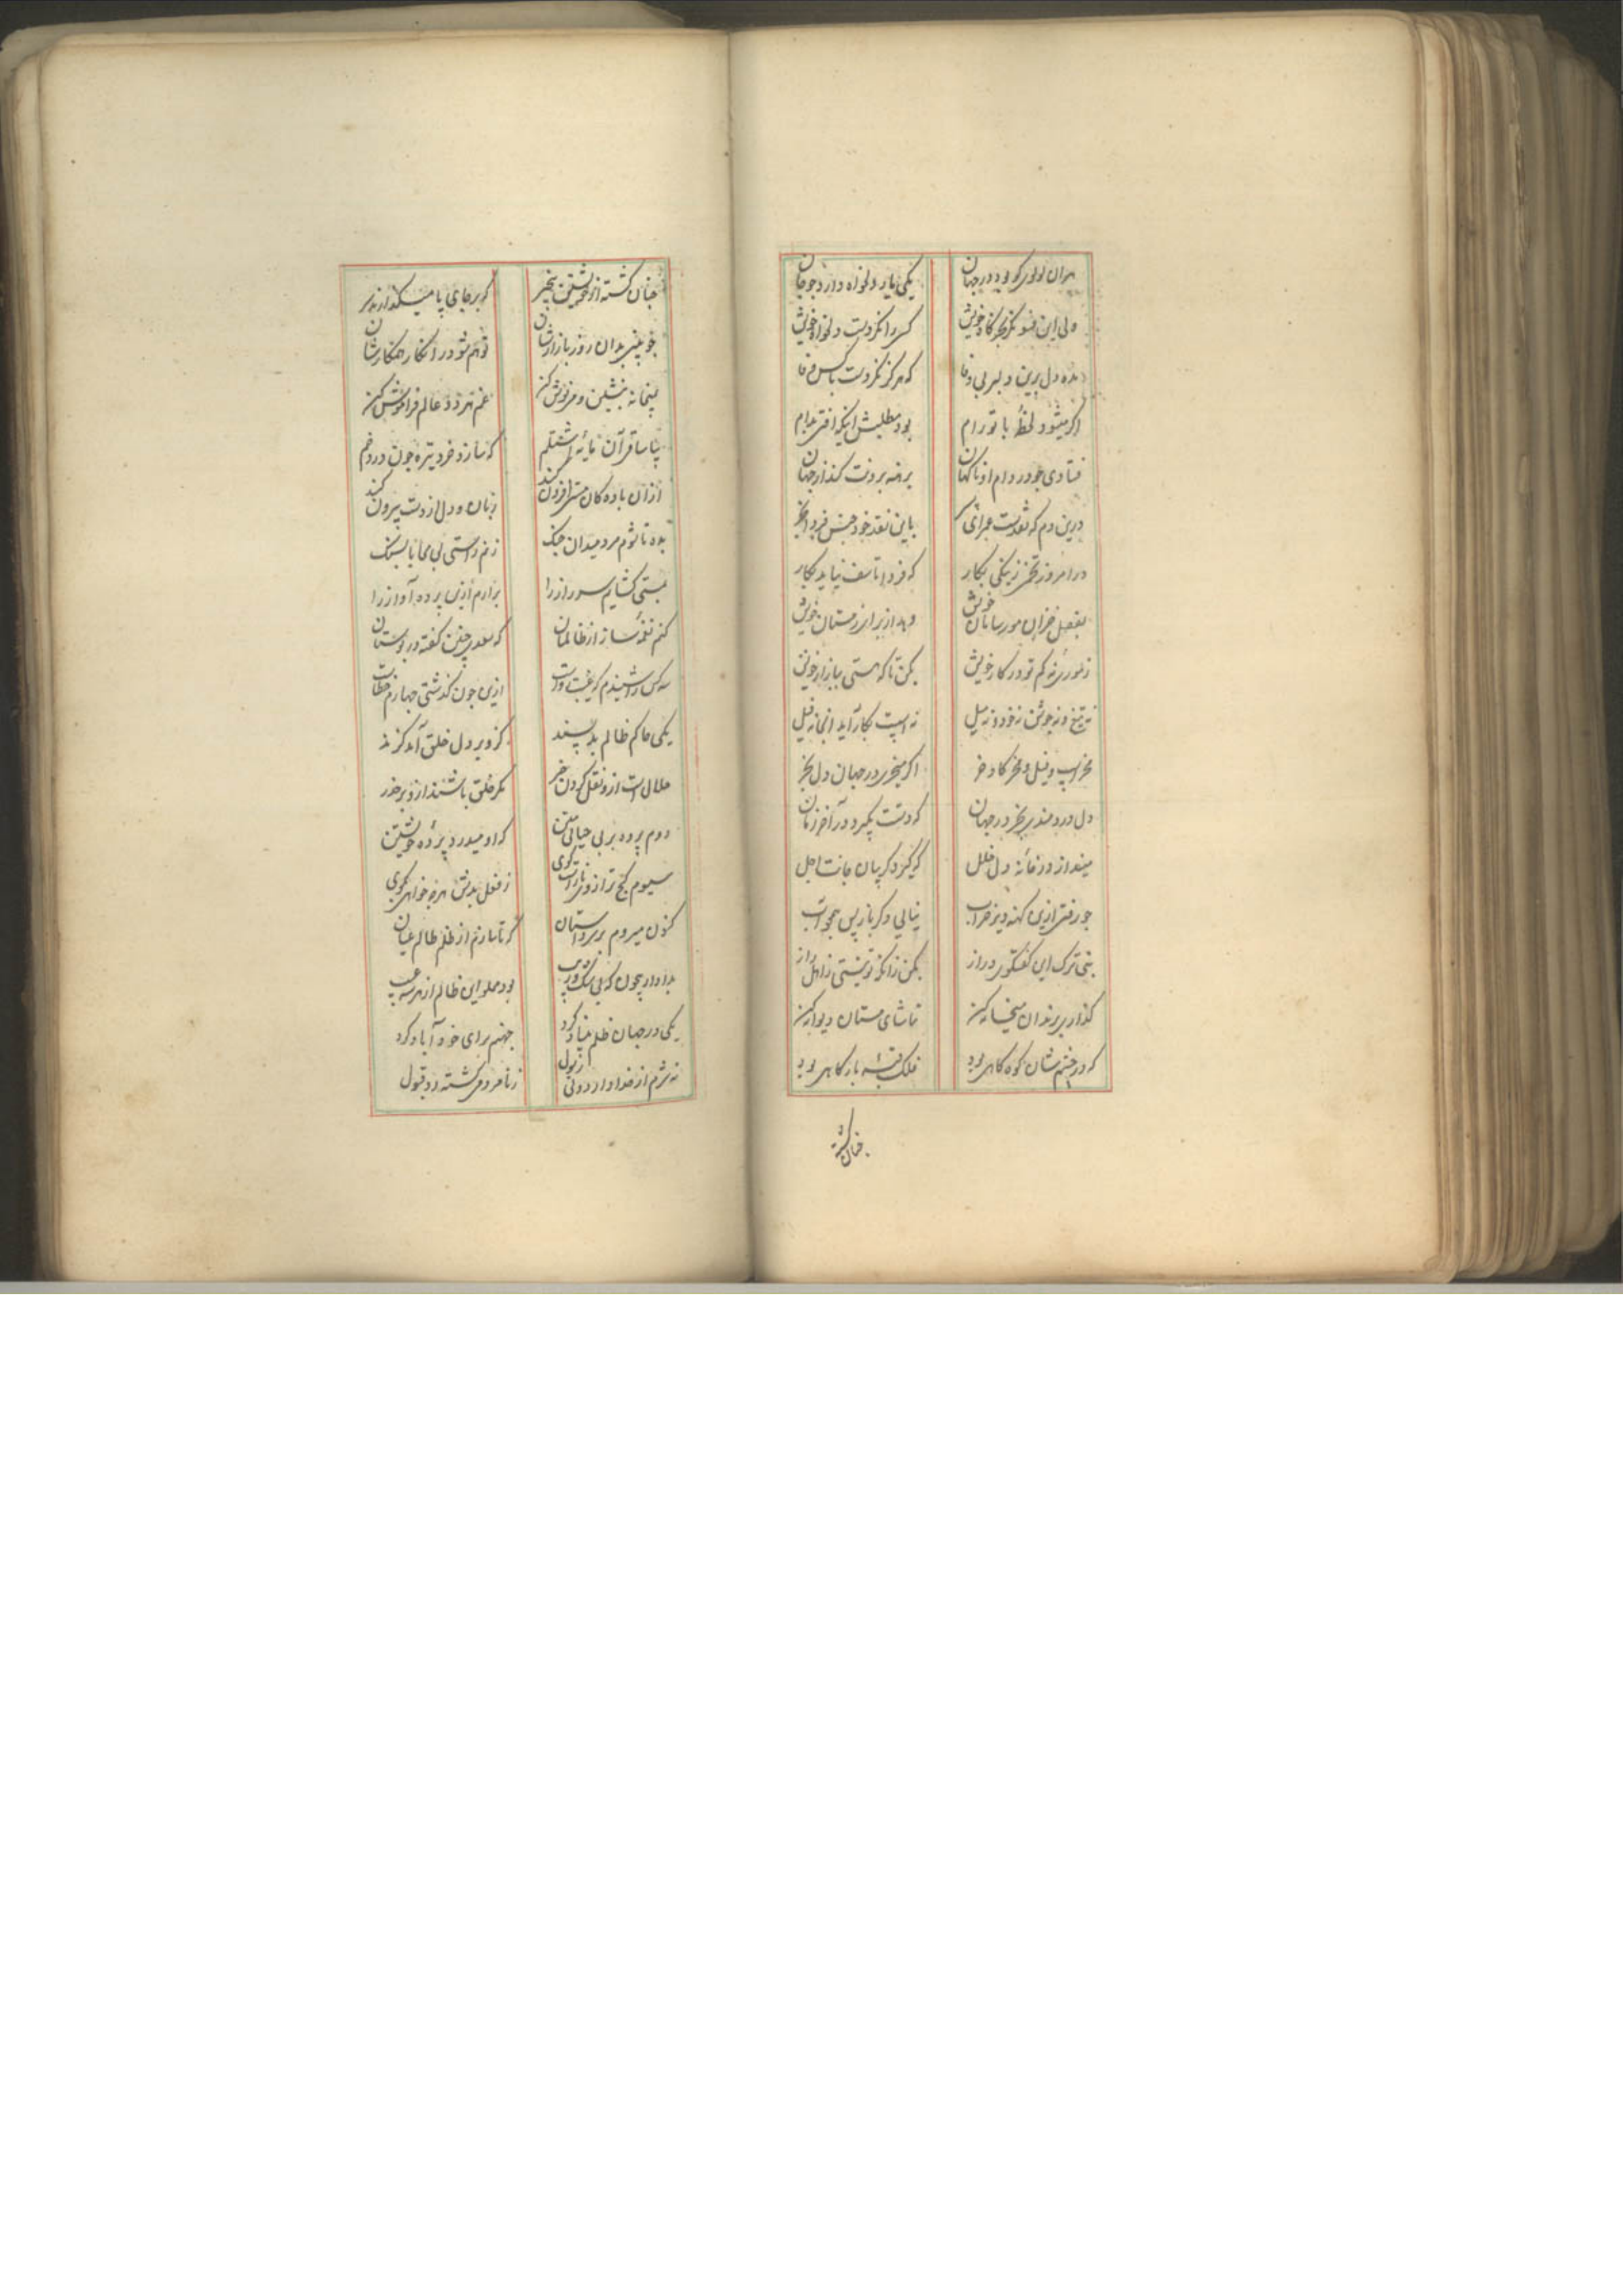 هران لولوی کو بود در جهان یکی یار دلخواه دارد چو جان
ولی این فسونگر بجز کار خویش کسی را نکردست دلخواه خویش
مده دل برین دلبر بی وفا که هرگز نکردست با کس وفا
اگر میشود لحظهٔ با تو رام بود مطلبش اینکه افتی بدام
فتادی چو در دام او ناگهان برهنه برونت کند از جهان
درین دم که نقدست باین نقد خود جنس فردا بخر
در امروز تخمی ز نیکی بکار که فردا تاسف نیاید بکار
بفصل خزان مور سامان خویش دهد از برای زمستان خویش
ز موری نهٔ کم تو در کار خویش بکن تا که هستی ببازار خویش
نه تیغ و نه جوشن نه خود و نه میل نه اسپت بکار آید آنجا نه فیل
مخر اسپ و فیل و مخر گاو خر اگر میخری در جهان دل بخر
دل دردمندی بخر در جهان که دستت بگیرد در آخر زمان
مینداز در خانهٔ دل خلل که گیرد گریبان جانت اجل
چو رفتی ازین کهنه دیر خراب نیایی دگر باز پس همچو آب
بنی ترک این گفتگوی دراز بکن زانکه تو نیستی ز اهل راز
گذاری برندان میخانه کن تماشای مستان دیوانه کن
که در چشمشان کوه کاهی بود فلک قبه بارگاهی بود
چنان گشته
چنان گشته از خویشتن بیخبر که بر جای پا میگذارند سر
چو بینی بدان روز بازارشان تو هم شو در انکار همکارشان
بپیمانه بنشین و می نوش کن غم هر دو عالم فراموش کن
بیا ساقی آن مایهٔ اشتلم که سازد خرد تیره چون درد خم
ازان باده کان مستی افزون کند زبان و دل از دست بیرون کند
بده تا شوم مرد میدان جنگ زنم راستی بی محابا بسنگ
بمستی گشایم سر راز را برارم ازین پرده آواز را
کنم نغمهٔ ساز از ظالمان که سعدی چنین گفته در بوستان
سه کس را شنیدم که غیبت رواست ازین چون گذشتی چهارم خطاست
یکی حاکم ظالم بد پسند کزو بر دل خلق آمد گزند
حلال است ازو نقل کردن خبر مگر خلق باشند ازو بر حذر
دوم پرده بر بی حیائی متن که او میدرد پردهٔ خویشتن
سیوم کج ترازوی ناراست گوی ز فعل بدش هرچه خواهی بگوی
کنون میروم بر سر داستان که تا سازم از ظلم ظالم عیان
بود مملو این ظالم از هر سه عیب
یکی در جهان ظلم بنیاد کرد جهنم برای خود آباد کرد
نه شرم از خدا دارد و نی ز رسول